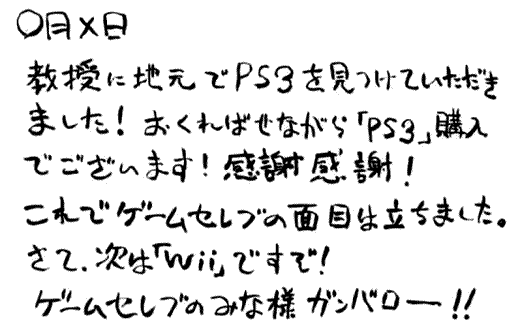 〇月×日
教授に地元でPS3を見つけていただき
ました！おくればせながら「PS3」購入
でございます！感謝感謝！
これでゲームセレブの面目は立ちました。
さて、次は「Wii」ですぞ！
ゲームセレブのみな様ガンバロー!!